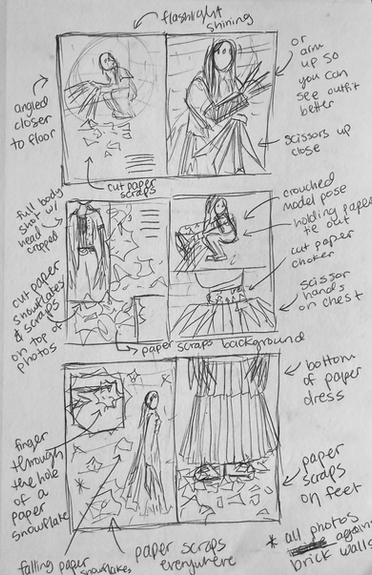 flashlight
shining
angled
closer
to floor
or
arm
up so
you can
see outfit
better
scissors up
close
cut paper
scraps
full body
shot w/
head
cropped
crouched
model pose
holding paper
tie out
cut paper
choker
scissor
hands
on chest
cut paper
snowflakes
& scraps
on top of
photos
paper scraps background
bottom
of paper
dress
finger
through
the hole
of a
paper
snowflake
paper
scraps
on feet
falling paper
snowflakes
paper scraps
everywhere
* all photos
against
brick walls